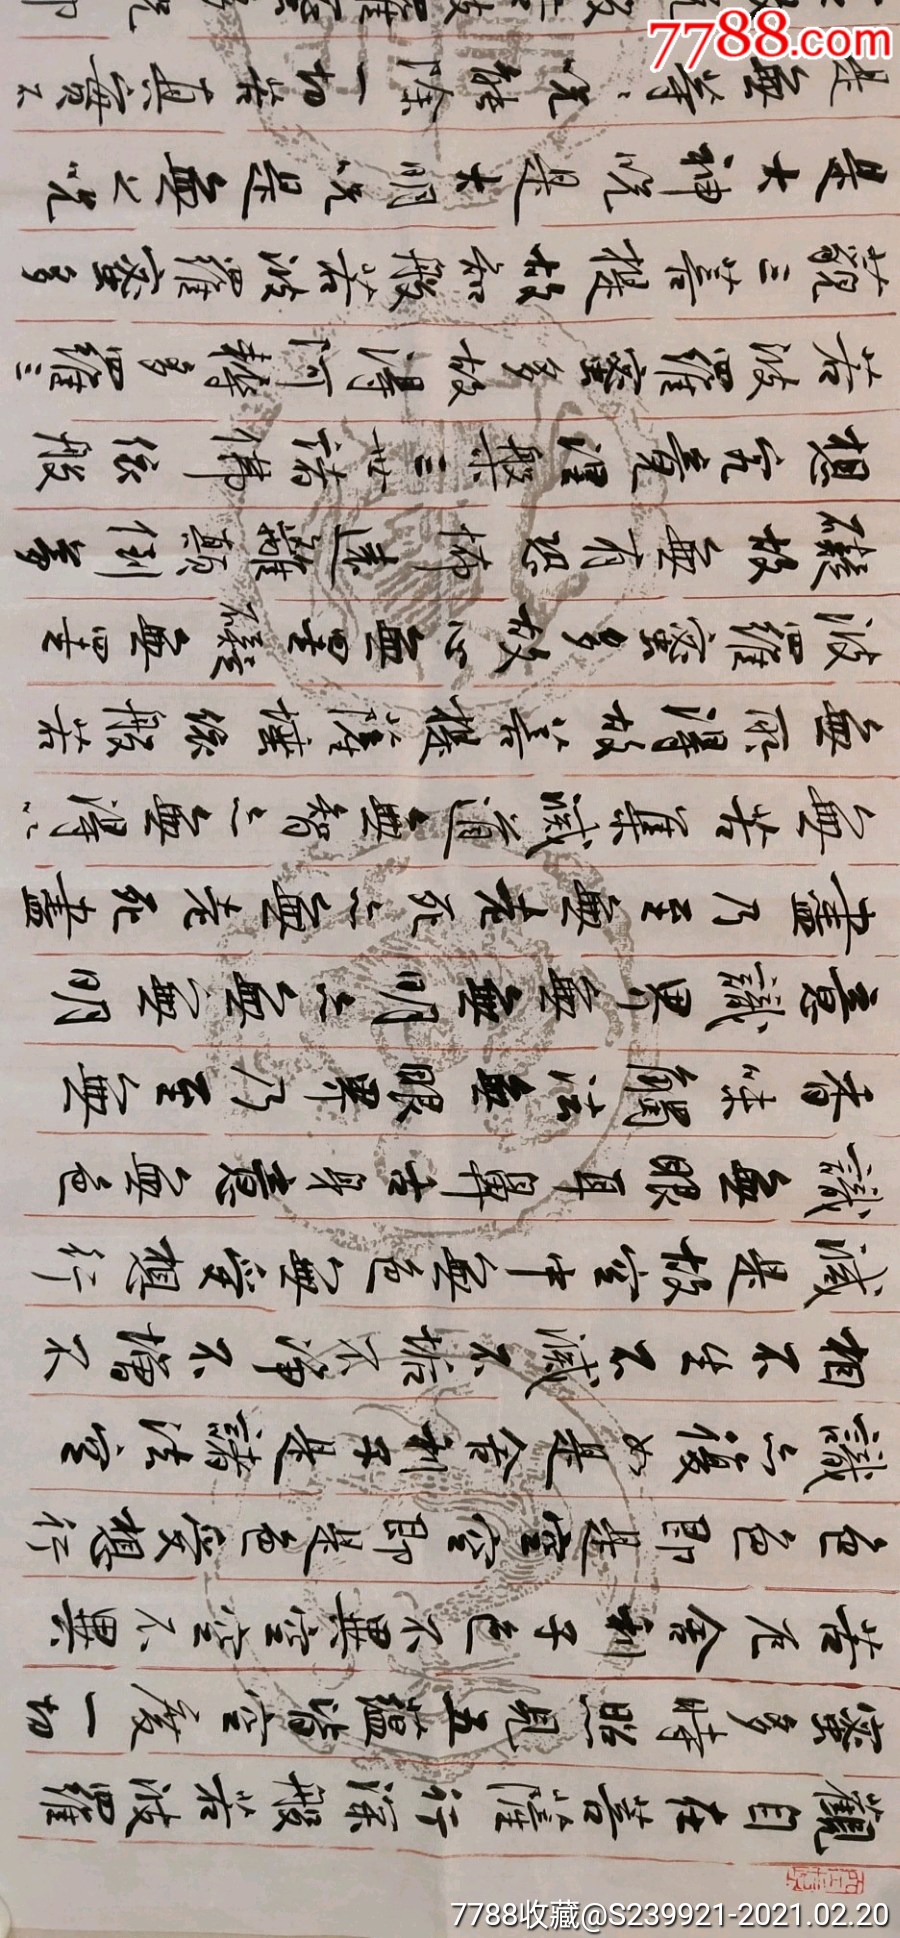 觀自在菩薩行深般若波羅
蜜多時照見五蘊皆空度一切
苦厄舍利子色不異空空不異
色色即是空空即是色受想行
識亦復如是舍利子是諸法空
相不生不滅不垢不淨不增不
滅是故空中無色無受想行
識無眼耳鼻舌身意無色
香味觸法無眼界乃至無
意識界無無明亦無無明
盡乃至無老死亦無老死盡
無苦集滅道無智亦無得以
無所得故菩提薩埵依般若
波羅蜜多故心無罣礙無罣
礙故無有恐怖遠離顛倒夢
想究竟涅槃三世諸佛依般
若波羅蜜多故得阿耨多羅三
藐三菩提故知般若波羅蜜多
是大神咒是大明咒是無上咒
是無等々咒能除一切苦真實不
7788.com
7788收藏@S239921-2021.02.20